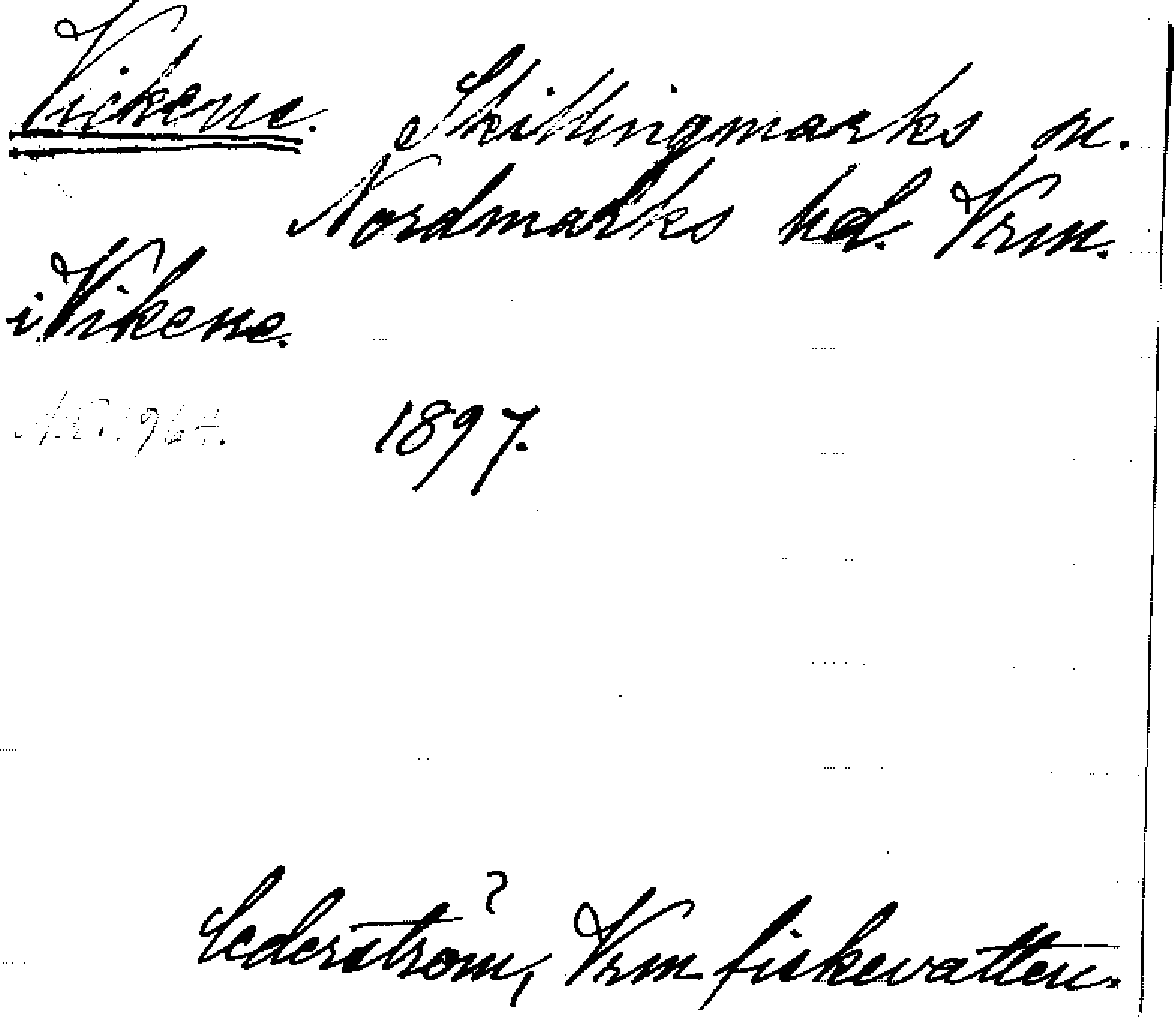 Vickene. Skillingmarks sn.
Nordmarks hd. Vrm.
i Vikene.
1964. 1897.
Cederström, Vrm fiskevatten.